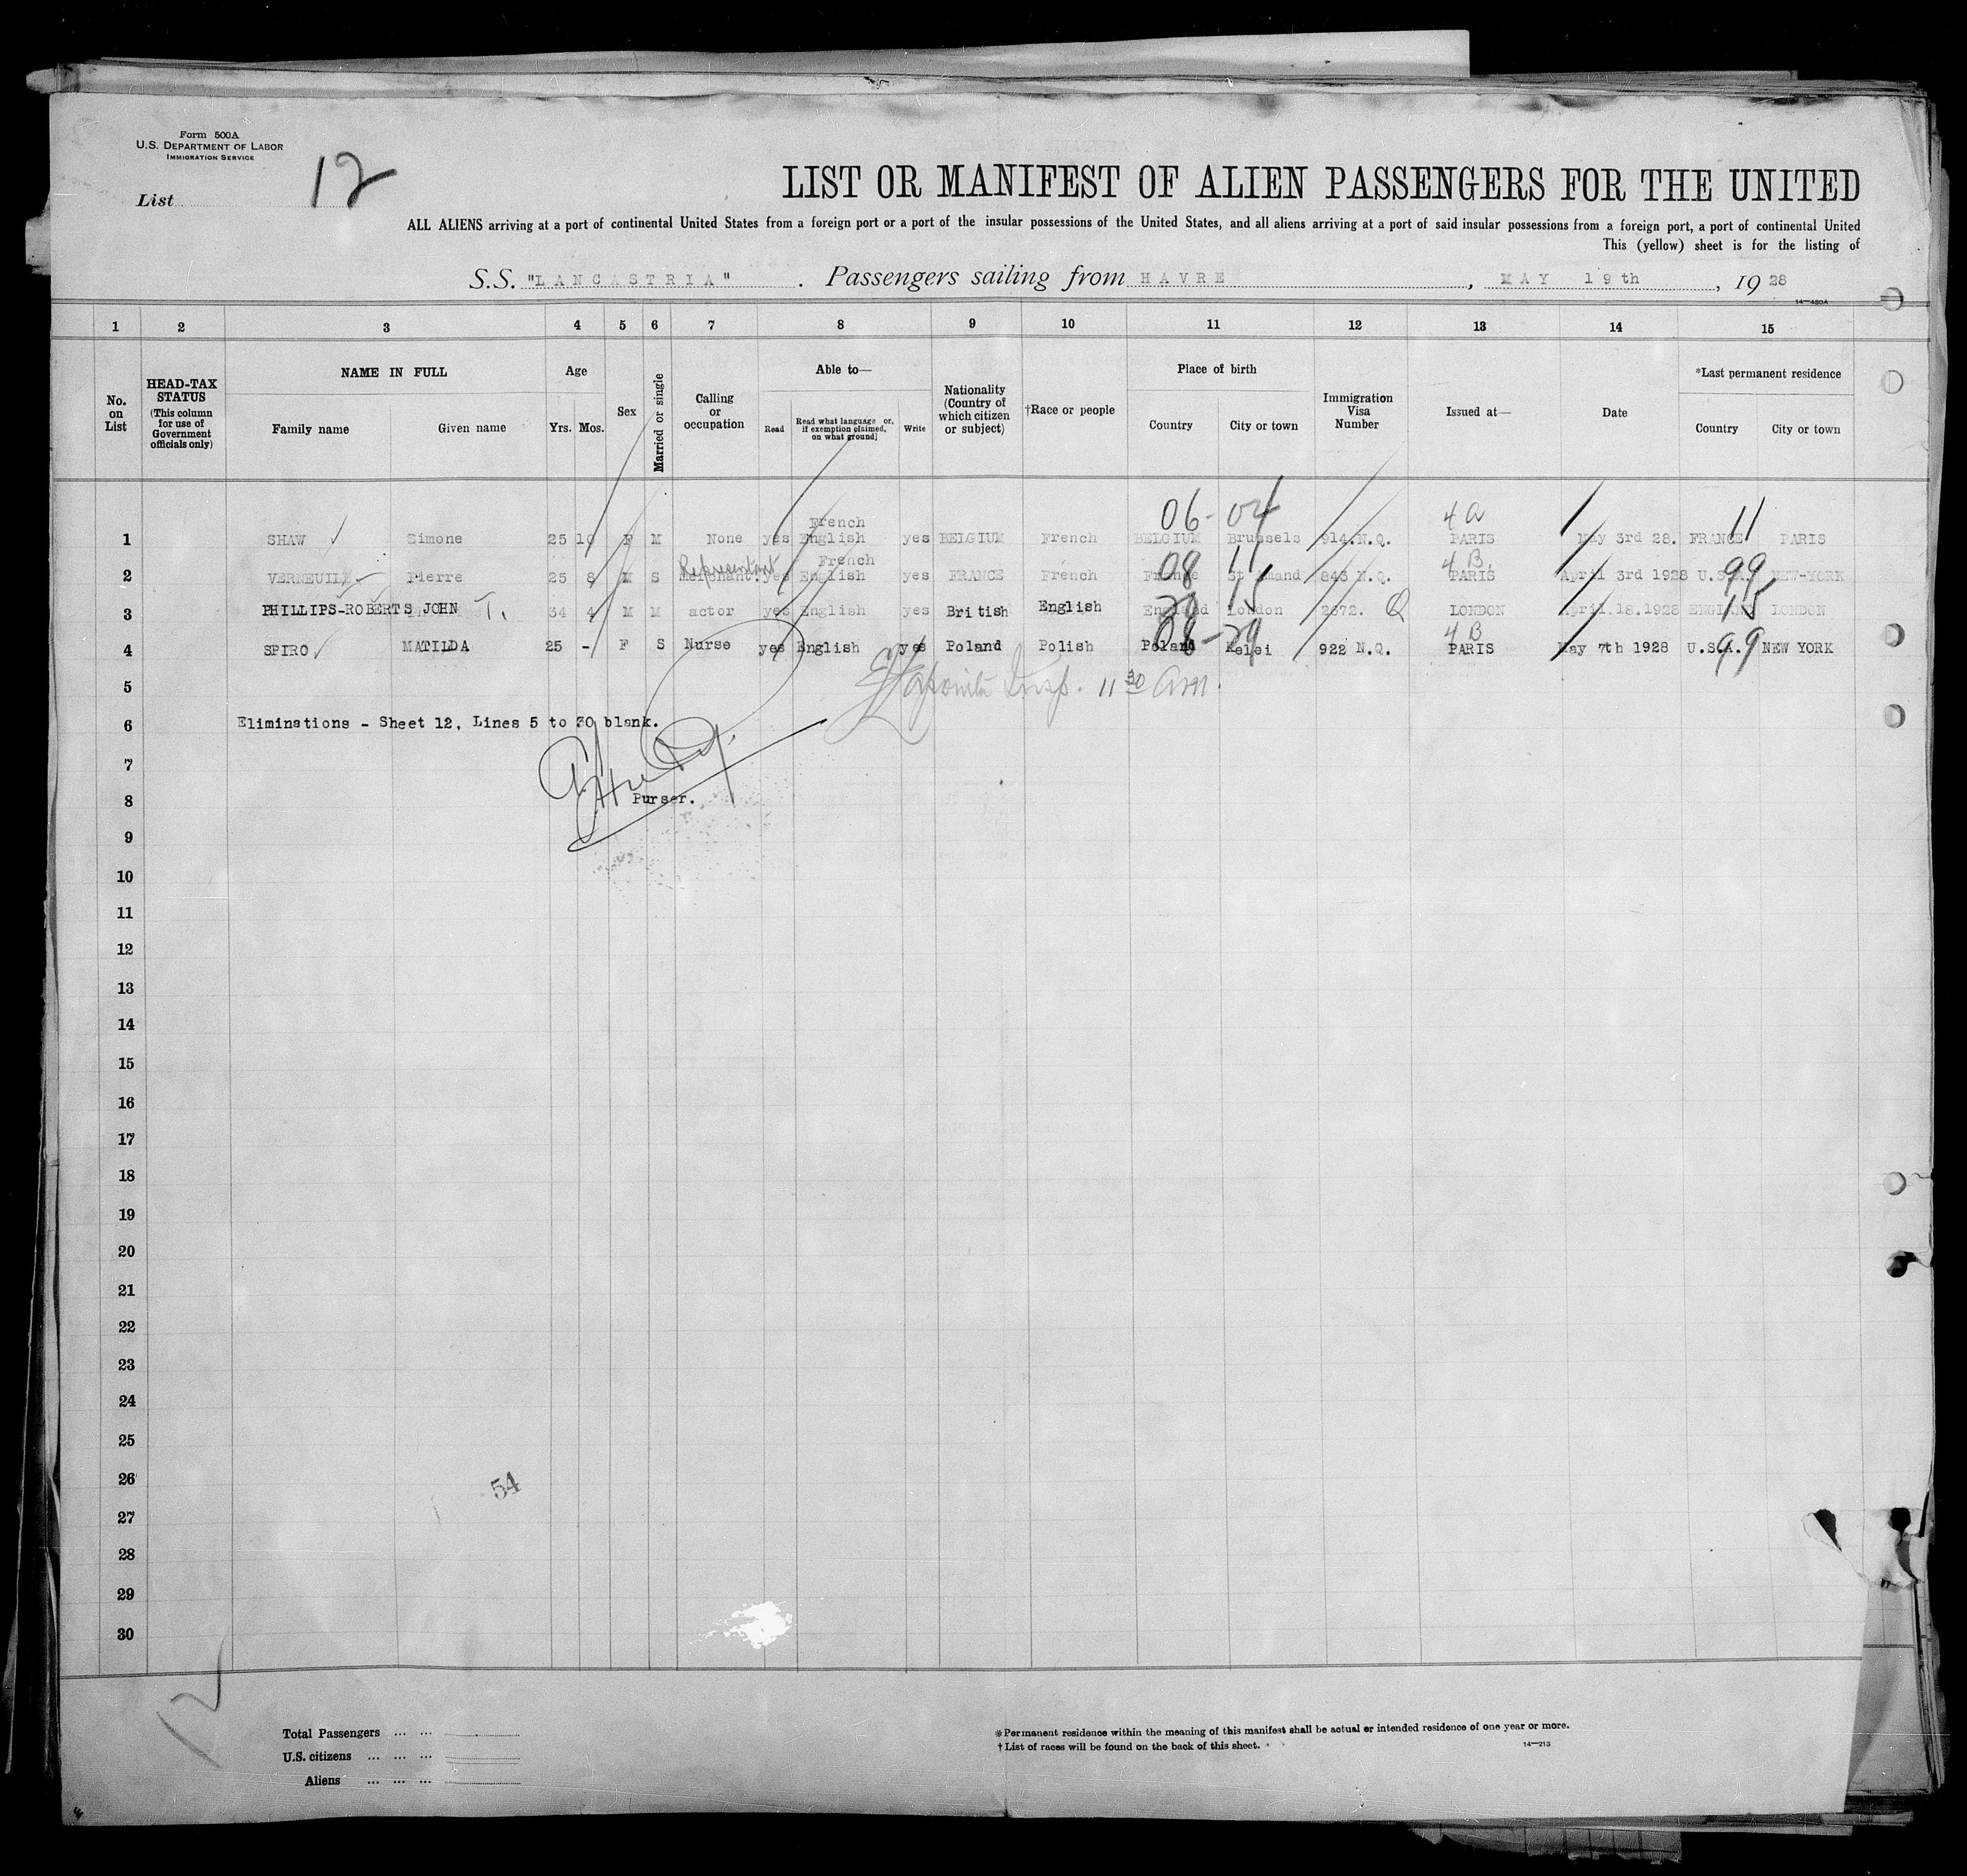 Form 500A
U.S. DEPARTMENT OF LABOR
IMMIGRATION SERVICE
List 12
LIST OR MANIFEST OF ALIEN PASSENGERS FOR THE UNITED
ALL ALIENS arriving at a port of continental United States from a foreign port or a port of the insular possessions of the United States, and all aliens arriving at a port of said insular possessions from a foreign port, a port of continental United
This (yellow) sheet is for the listing of
S.S. "LANCASTRIA". Passengers sailing from HAVRE, MAY 19th, 1928
14—430A
1 2 3 4 5 6 7 8 9 10 11 12 13 14 15
No. on List
HEAD-TAX STATUS (This column for use of Government officials only)
NAME IN FULL
Family name Given name
Age
Yrs. Mos.
Sex
Married or single
Calling or occupation
Able to—
Read
Read what language [or, if exemption claimed, on what ground]
Write
Nationality (Country of which citizen or subject)
†Race or people
Place of birth
Country City or town
Immigration Visa Number
Issued at—
Date
*Last permanent residence
Country City or town
French 06- 04 4a 11
1 SHAW Simone 25 10 F M None yes English yes BELGIUM French BELGIUM Brussels 914.N.Q. PARIS May 3rd 28. FRANCE PARIS
Representant French 08 11 4 B. 99
2 VERNEUIL Pierre 25 8 M S merchant yes English yes FRANCE French France St Amand 843 N.Q. PARIS April 3rd 1928 U.S.A. NEW-YORK
3 PHILLIPS-ROBERTS JOHN T. 34 4 M M actor yes English yes British English England London 2672. Q LONDON April.18.1928 ENGLAND LONDON
20 15 15
08-29 4 B 99
4 SPIRO MATILDA 25 - F S Nurse yes English yes Poland Polish Poland Kelei 922 N.Q. PARIS May 7th 1928 U.S.A. NEW YORK
5 Insp. 11 30 am.
6 Eliminations - Sheet 12, Lines 5 to 30 blank.
7
8 Purser.
9
10
11
12
13
14
15
16
17
18
19
20
21
22
23
24
25
26
54
27
28
29
30
12
Total Passengers ... ...
U.S. citizens ... ... ...
Aliens ... ... ...
*Permanent residence within the meaning of this manifest shall be actual or intended residence of one year or more.
†List of races will be found on the back of this sheet.
14—213